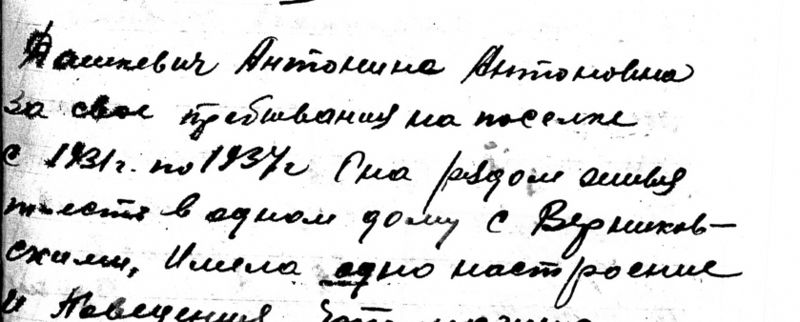 Дашкевич Антонина Антоновна
за свое пребывания на поселке
с 1931г. по 1937г Она рядом живя
в одном дому с Верников-
скими, Имела одно настроение
и Поведения